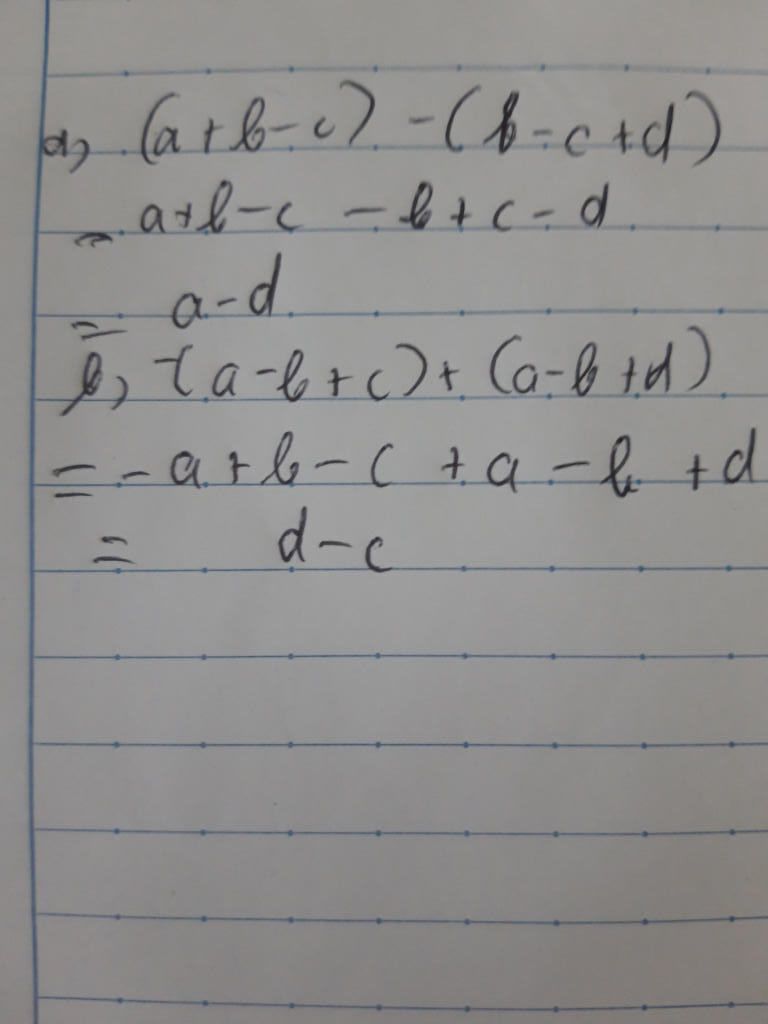 a, (a+b-c) - (b-c+d)
= a+b-c - b+c-d
= a-d
b, -(a-b+c)+ (a-b+d)
= -a+b-c +a-b +d
= d-c